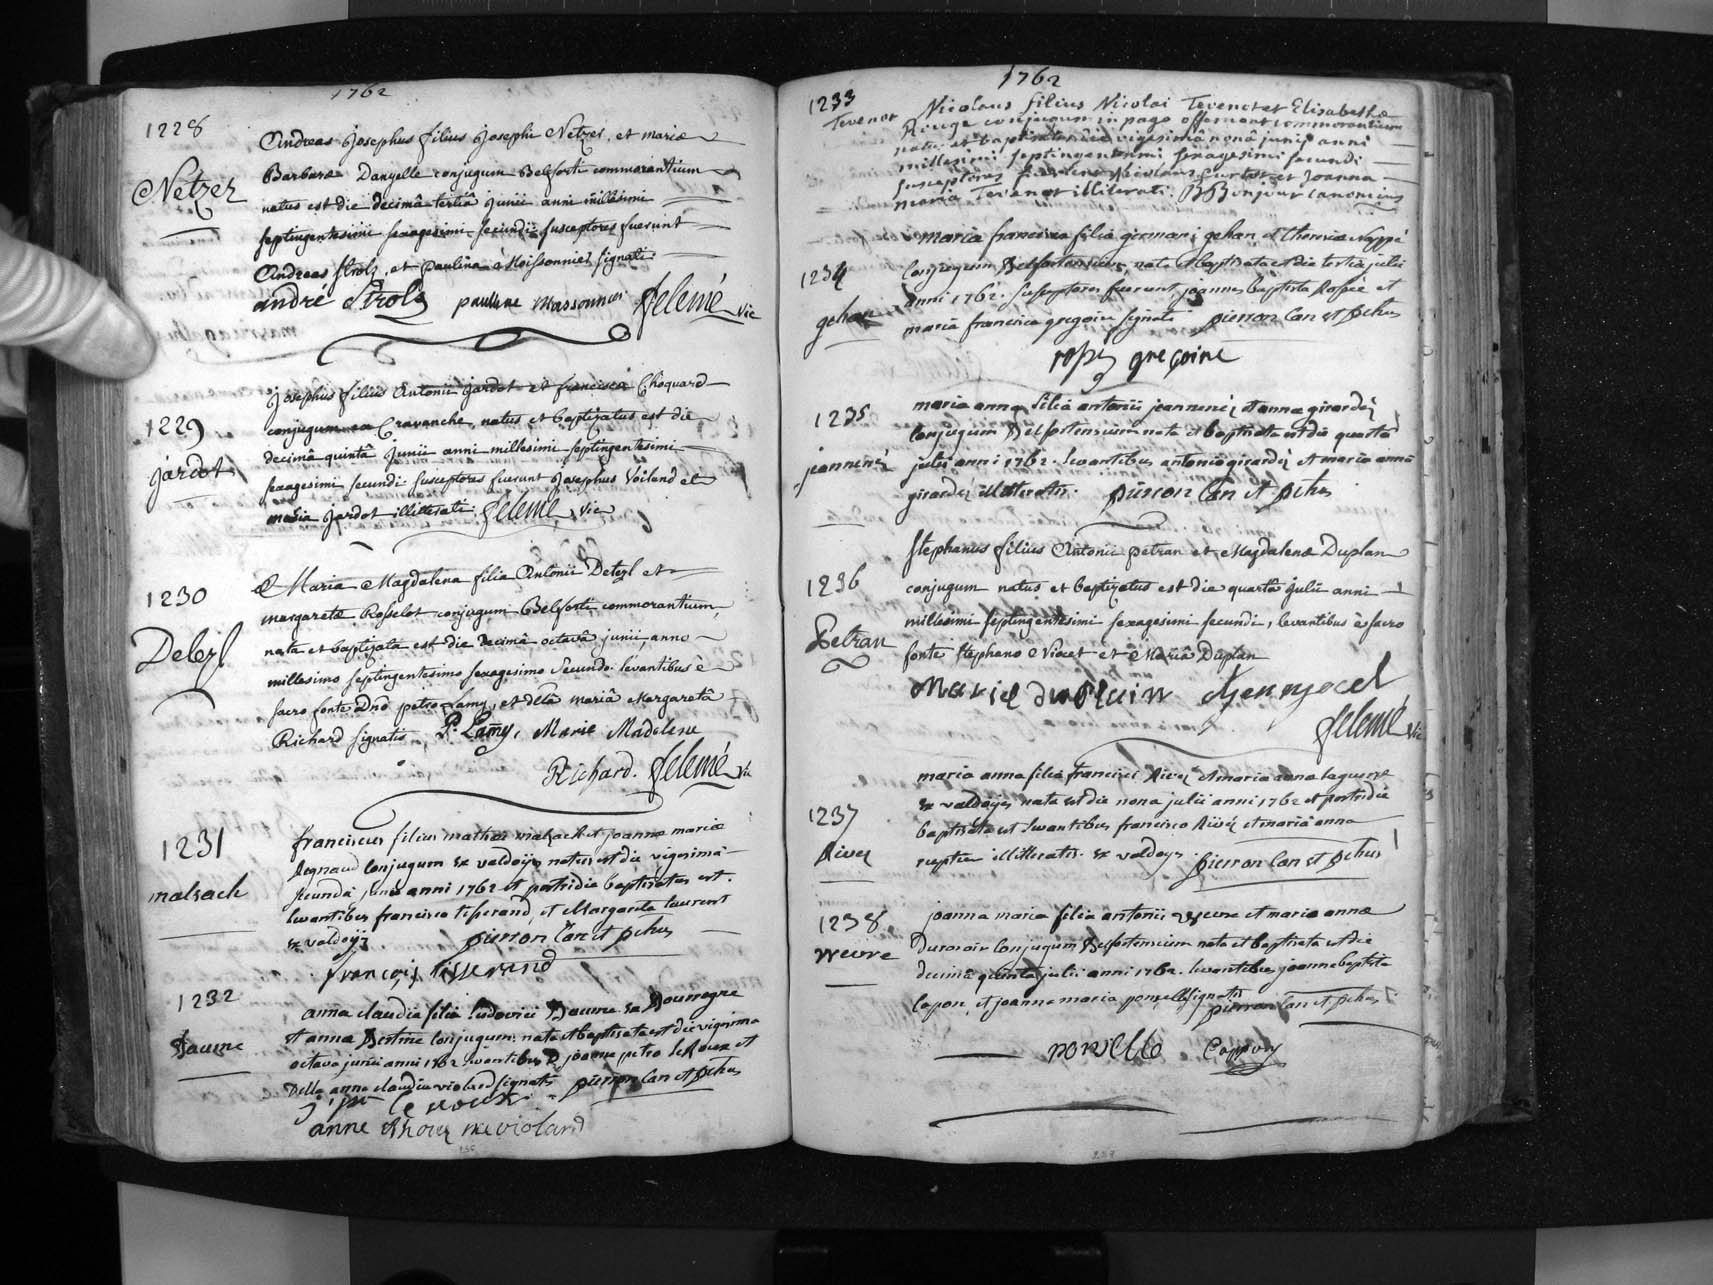 1762
1228
Netzer
Andreas Josephus filius Josephi Netzer, et mariæ
Barbaræ Danyelle conjugum Belforti commorantium
natus est die decimâ tertiâ Junii anni millesimi
septingentesimi sexagesimi secundi: susceptores fuerunt
Andreas Strolz, et Paulina Moissonnier signati.
andré Strolz pauline massonnier Jelemé vic
1229
jardot
Josephus filius Antonii jardot et franciscæ Choquard
conjugum ex Cravanche, natus et baptizatus est die
decimâ quintâ Junii anni millesimi septingentesimi
sexagesimi secundi susceptores fuerunt Josephus Voiland et
maria jardot illitterati. Jelemé, vic
1230
Detezl
Maria Magdalena filia Antonii Detezl et
margaretæ Rosselot conjugum Belforti commorantium,
nata et baptizata est die decimâ octavâ junii, anno
millesimo septingentesimo sexagesimo secundo. levantibus è
sacro fonte dno petro Lamy, et dlla mariâ Margaretâ
Richard signatis, P. Lamy, Marie Madelene
Richard. Jelemé vic
1231
malsach
franciscus filius mathæi malsach et joannæ mariæ
Regnaud conjugum ex valdoÿe natus est die vigesimâ
secunda junii anni 1762 et postridie baptisatus est.
levantibus francisco tisserand, et Margarita laurent
ex valdoÿe pierron Can et pchus
françois tisserand
1232
Baume
anna claudia filia ludovici Baume ex Bourogne
et annæ conjugum, nata et baptisata est die vigesima
octava junii anni 1762 levantibus D. joanne petro leRoux et
Della anna claudia violand signatis pierron Can et pchus
j: pre le roux.
anne née violand
236
1762
1233
Tevenot
Nicolaus filius Nicolai Tevenot et Elisabethæ
Rouge conjugum in pago offemont commorantium
natus et baptisatus die vigesimâ nonâ junii anni
millesimi septingentesimi sexagesimi secundi
susceptores fuerunt Nicolaus et Joanna
maria Tevenot illiterati. Bonjour canonicus
1234
gehan
maria francisca filia germani gehan, et theresiæ Nappé
Conjugum Belfortensium, nata et baptisata est die tertia julii
anni 1762. susceptores fuerunt joannes baptista Rossé et
maria francisca gregoire signati pierron Can et pchus
rossé gregoire
1235
jeannené
maria anna filia antonii jeannenéz et annæ girardéz
Conjugum Belfortensium nata et baptisata est die quarta
julii anni 1762. levantibus antonio girardéz et maria anna
girardéz illitteratis. pierron Can et pchus
1236
Petran
Stephanus filius Antonii petran et Magdalenæ Duplan
conjugum natus et baptizatus est die quartâ julii anni
millesimi septingentesimi sexagesimi secundi, levantibus è sacro
fonte Stephano et Mariâ Duplan
Jelemé vic
1237
Rivez
maria anna filia francisci Rivez et maria anna
ex valdoÿe nata est die nona julii anni 1762 et postridie
baptisata est levantibus francisco Rivéz et maria anna
illitteratis. ex valdoye. pierron Can et pchus
1238
weure
joanna maria filia antonii weure et maria annæ
Conjugum Belfortensium nata et baptisata est die
decima quinta julii anni 1762. levantibus joanne baptista
Capon, et joanna maria porvelle signatis pierron Can et pchus
237